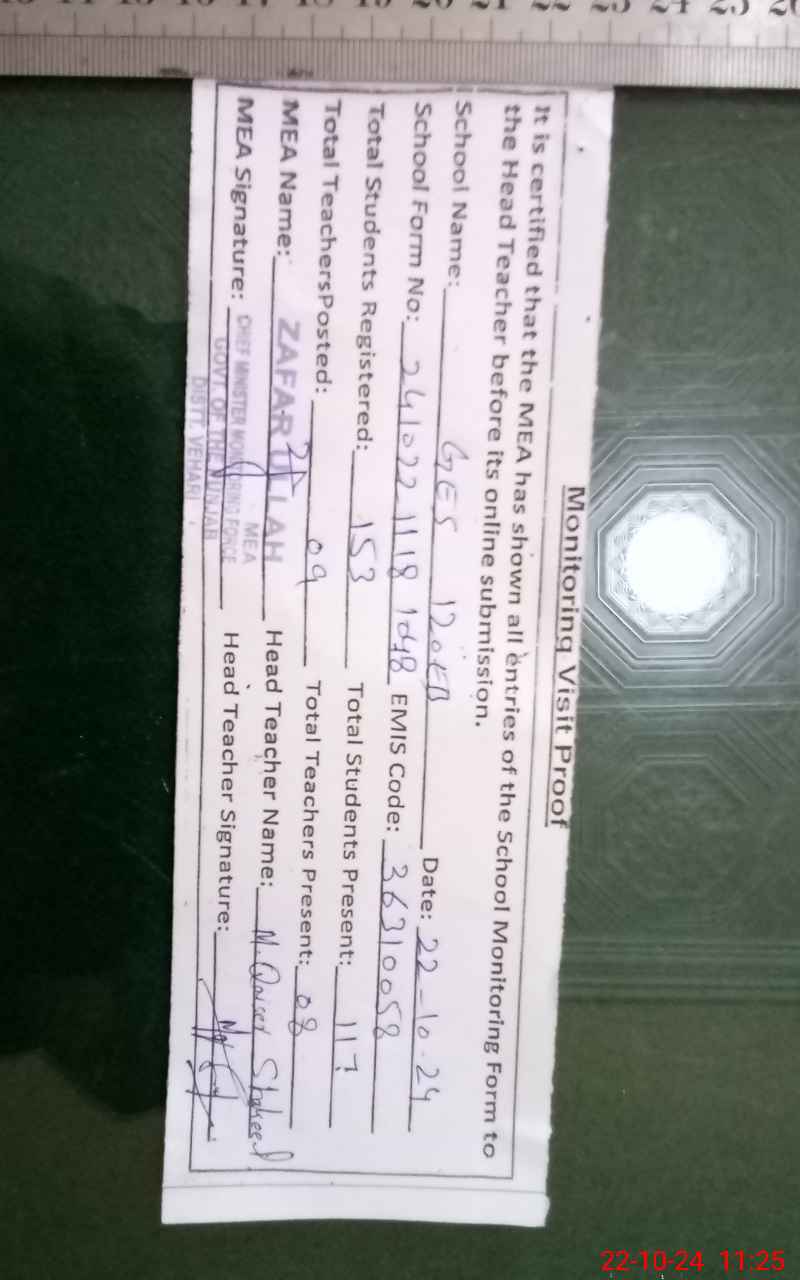 Monitoring Visit Proof
It is certified that the MEA has shown all entries of the School Monitoring Form to
the Head Teacher before its online submission.
School Name: GES 120EB Date: 22-10-24
School Form No: 241022 1118 1048 EMIS Code: 36310058
Total Students Registered: 153 Total Students Present: 117
Total TeachersPosted: 09 Total Teachers Present: 08
MEA Name: ZAFAR ULLAH Head Teacher Name: M. Qaiser Shakeel
MEA
MEA Signature: Head Teacher Signature:
CHIEF MINISTER MONITORING FORCE
GOVT. OF THE PUNJAB
DISTT. VEHARI
22-10-24 11:25